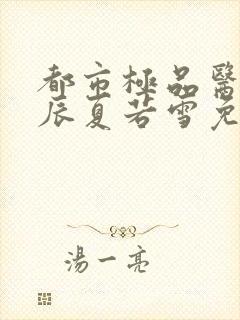 都市極品醫
辰夏若雪免
湯一亮